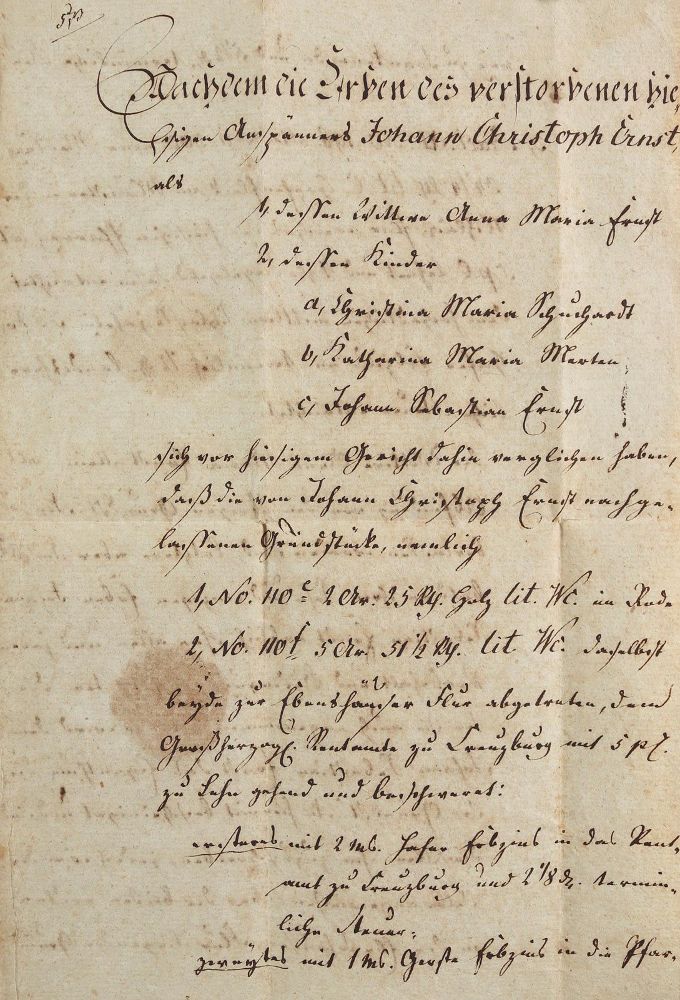 Nachdem die Erben des verstorbenen hie-
sigen Anspänners Johann Christoph Ernst,
als
1, dessen Wittwe Anna Maria Ernst
2, dessen Kinder
a, Christina Maria Schuchardt
b, Katharina Maria Merten
c, Johann Sebastian Ernst
sich vor hiesigem Gericht dahin verglichen haben,
daß die von Johann Christoph Ernst nachge-
lassenen Grundstücke, nemlich
1, No. 110e 2 Ar. 25 Rth. Holz lit. Wc. im Rode
2, No. 110f 5 Ar. 51 1/2 Rth. lit. Wc. daselbst
beyde zur Ebenshäuser Flur abgetreten, dem
Großherzogl. Rentamte zu Creuzburg mit 5 pC.
zu Lehn gehend und beschweret:
ersteres mit 2 Ms. Hafer Erbzins in das Rent-
amt zu Creuzburg und 2 1/8 termin-
liche Steuer.
zweytes mit 1 Ms. Gerste Erbzins in die Pfar-